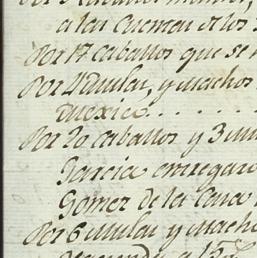 a las Cuentas de los
Por 17 caballos que se
Por 4 mulas, y machos
Mexico
Por 20 caballos y 3 mu
Garcia entregaro
Gomez de la Casa
Por 6 mulas y macho